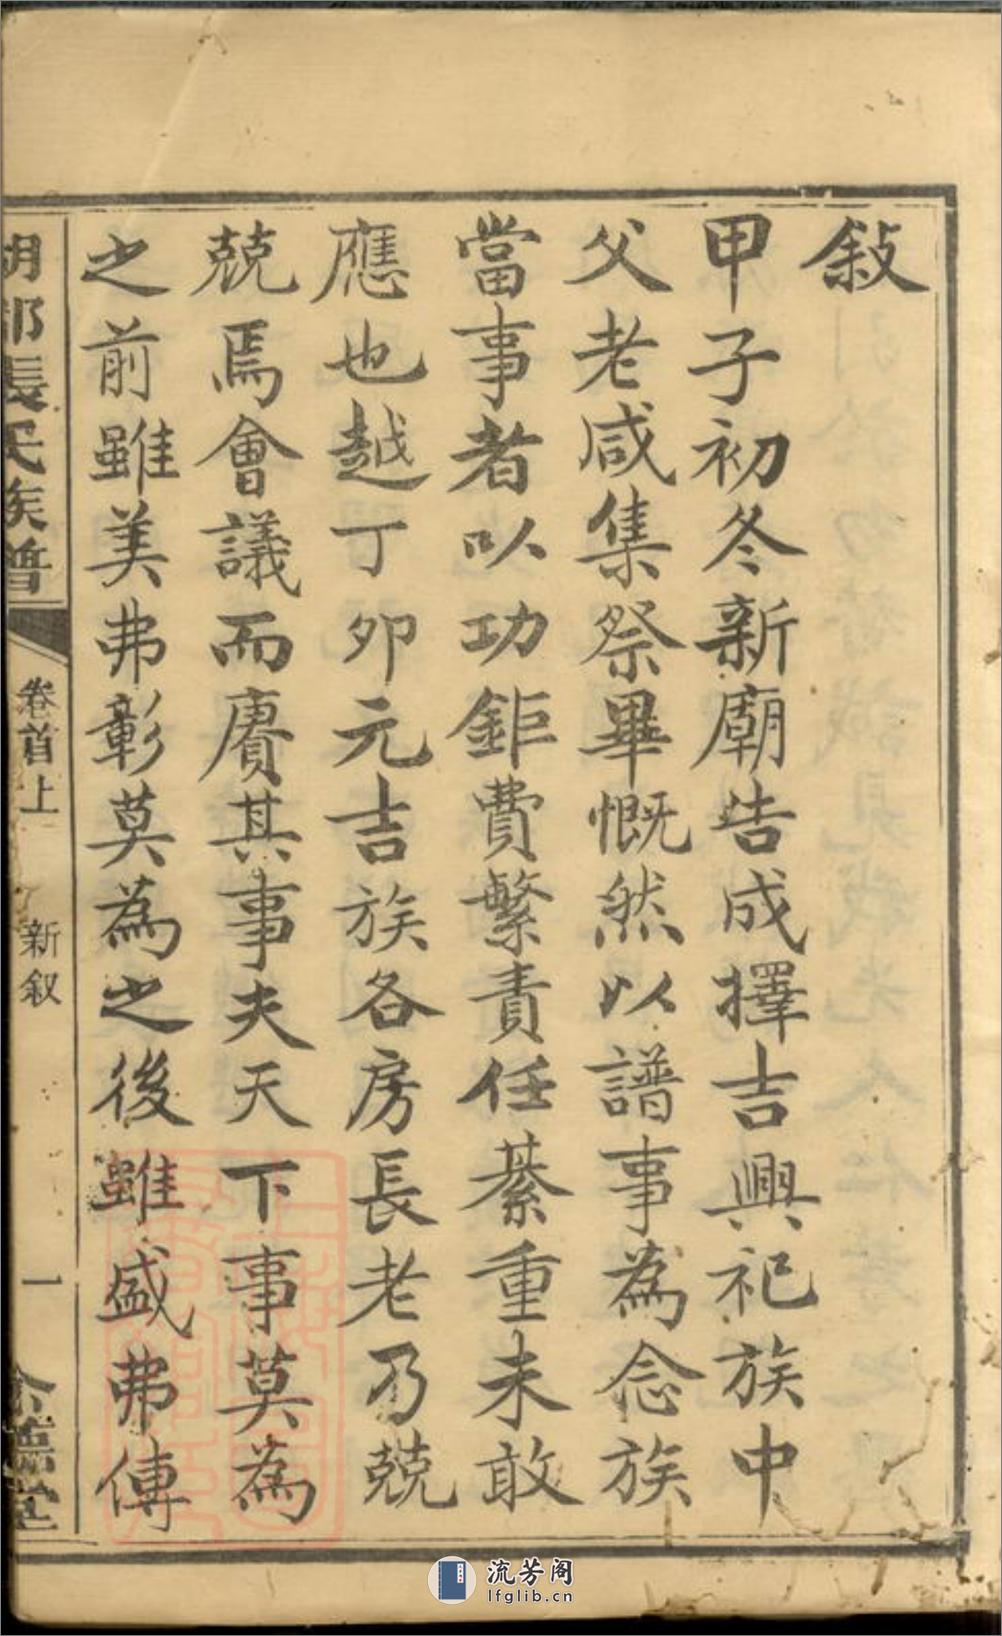 敍
甲子初冬新廟告成擇吉興祀族中
父老咸集祭畢慨然以譜事為念族
當事者以功鉅費繁責任綦重未敢
應也越丁夘元吉族各房長老乃兢
兢焉會議而賡其事夫天下事莫為
之前雖美弗彰莫為之後雖盛弗傳
胡郡張氏族譜
卷首上
新叙
一
堂
流芳阁
lfglib.cn